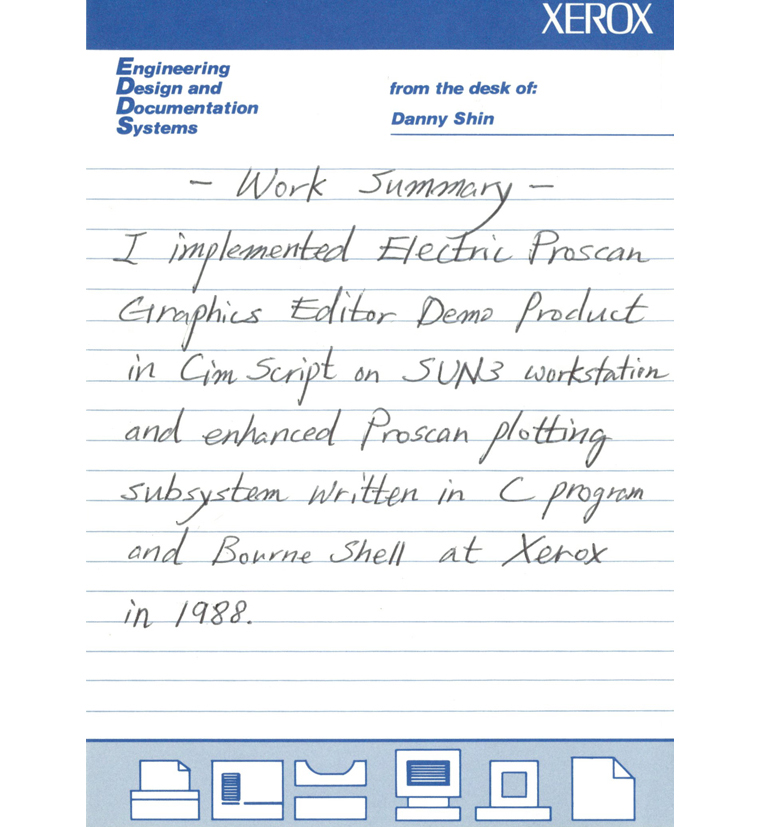 XEROX
Engineering
Design and
Documentation
Systems
from the desk of:
Danny Shin
- Work Summary -
I implemented Electric Proscan
Graphics Editor Demo Product
in Cim Script on SUN3 workstation
and enhanced Proscan plotting
subsystem written in C program
and Bourne Shell at Xerox
in 1988.